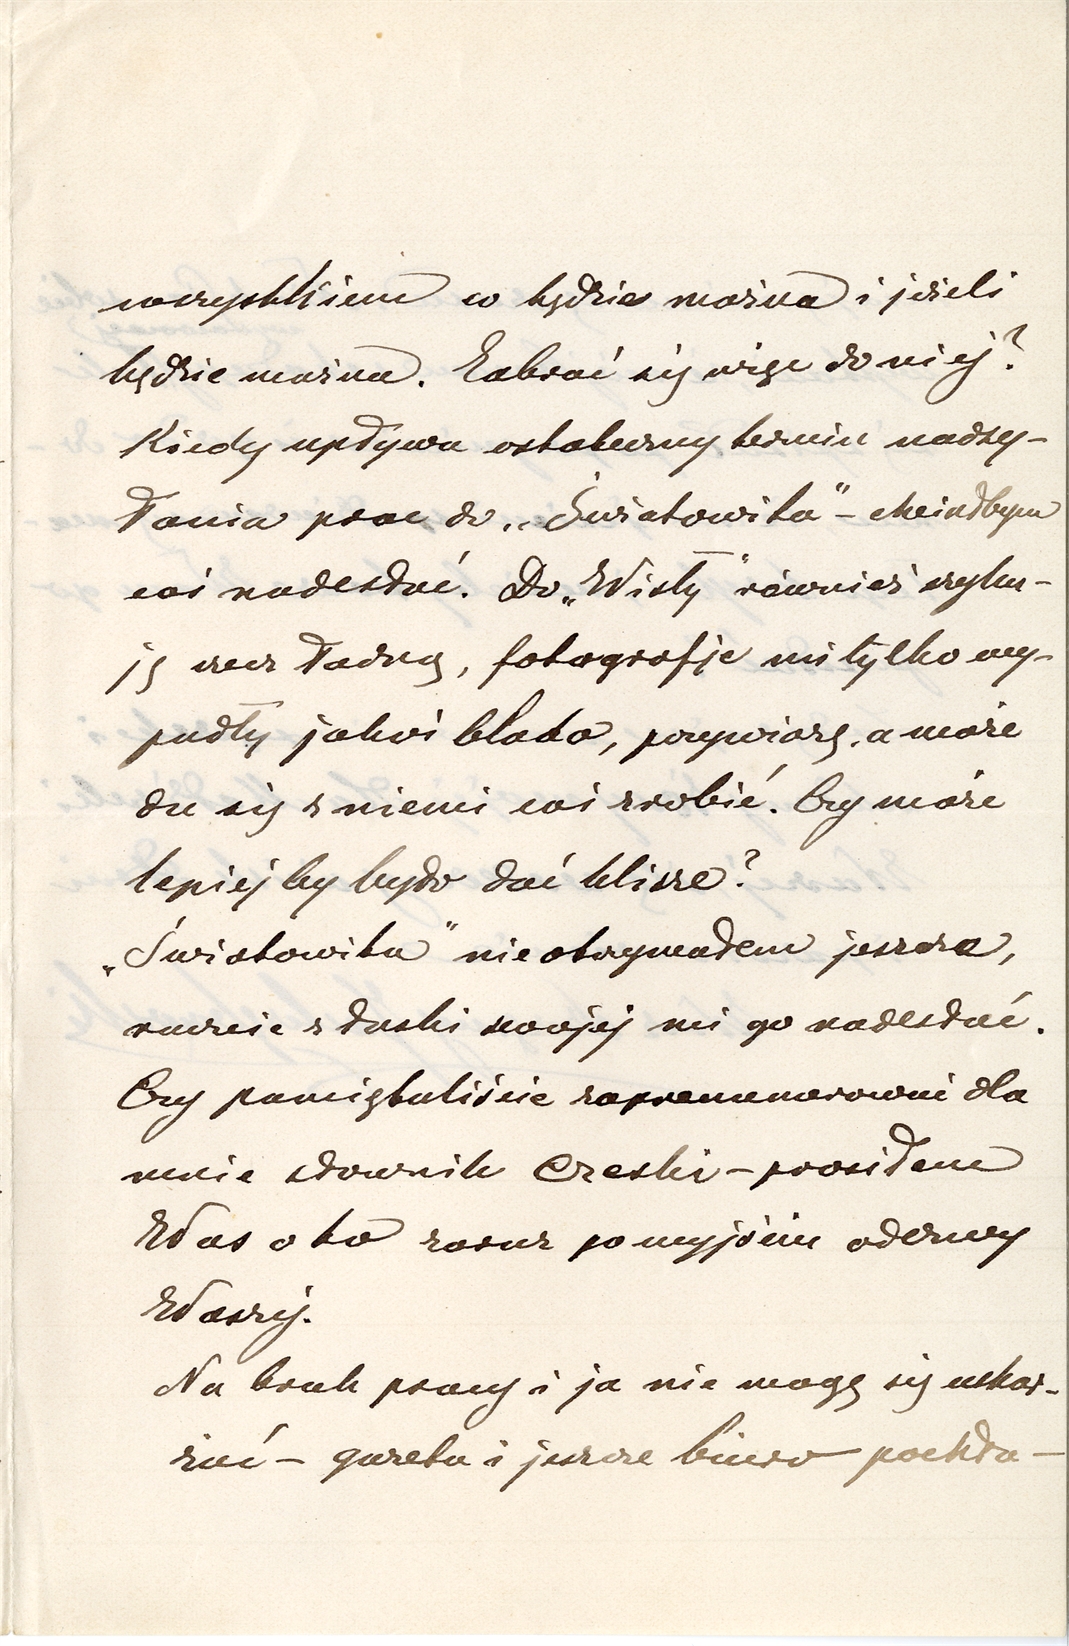 wszystkiem co będzie można i jeżeli
będzie można. Zabrać się więc do niej?
Kiedy upływa ostateczny termin nadsy-
łania prac do „Światowita" – chciałbym
coś nadesłać. Do „Wisły" również szyku-
ję rzecz ładną, fotografje mi tylko wy-
padły jakoś blado, przywiozę, a może
da się z niemi coś zrobić. Czy może
lepiej by było dać klisze?
„Światowita" nie otrzymałem jeszcze,
raczcie z łaski swojej mi go nadesłać.
Czy pamiętaliście zaprenumerować dla
mnie słownik Czeski – prosiłem
Was o to zaraz po wyjściu odezwy
Waszej.
Na brak pracy i ja nie mogę się uskar-
żać – gazeta i jeszcze biuro pochła-